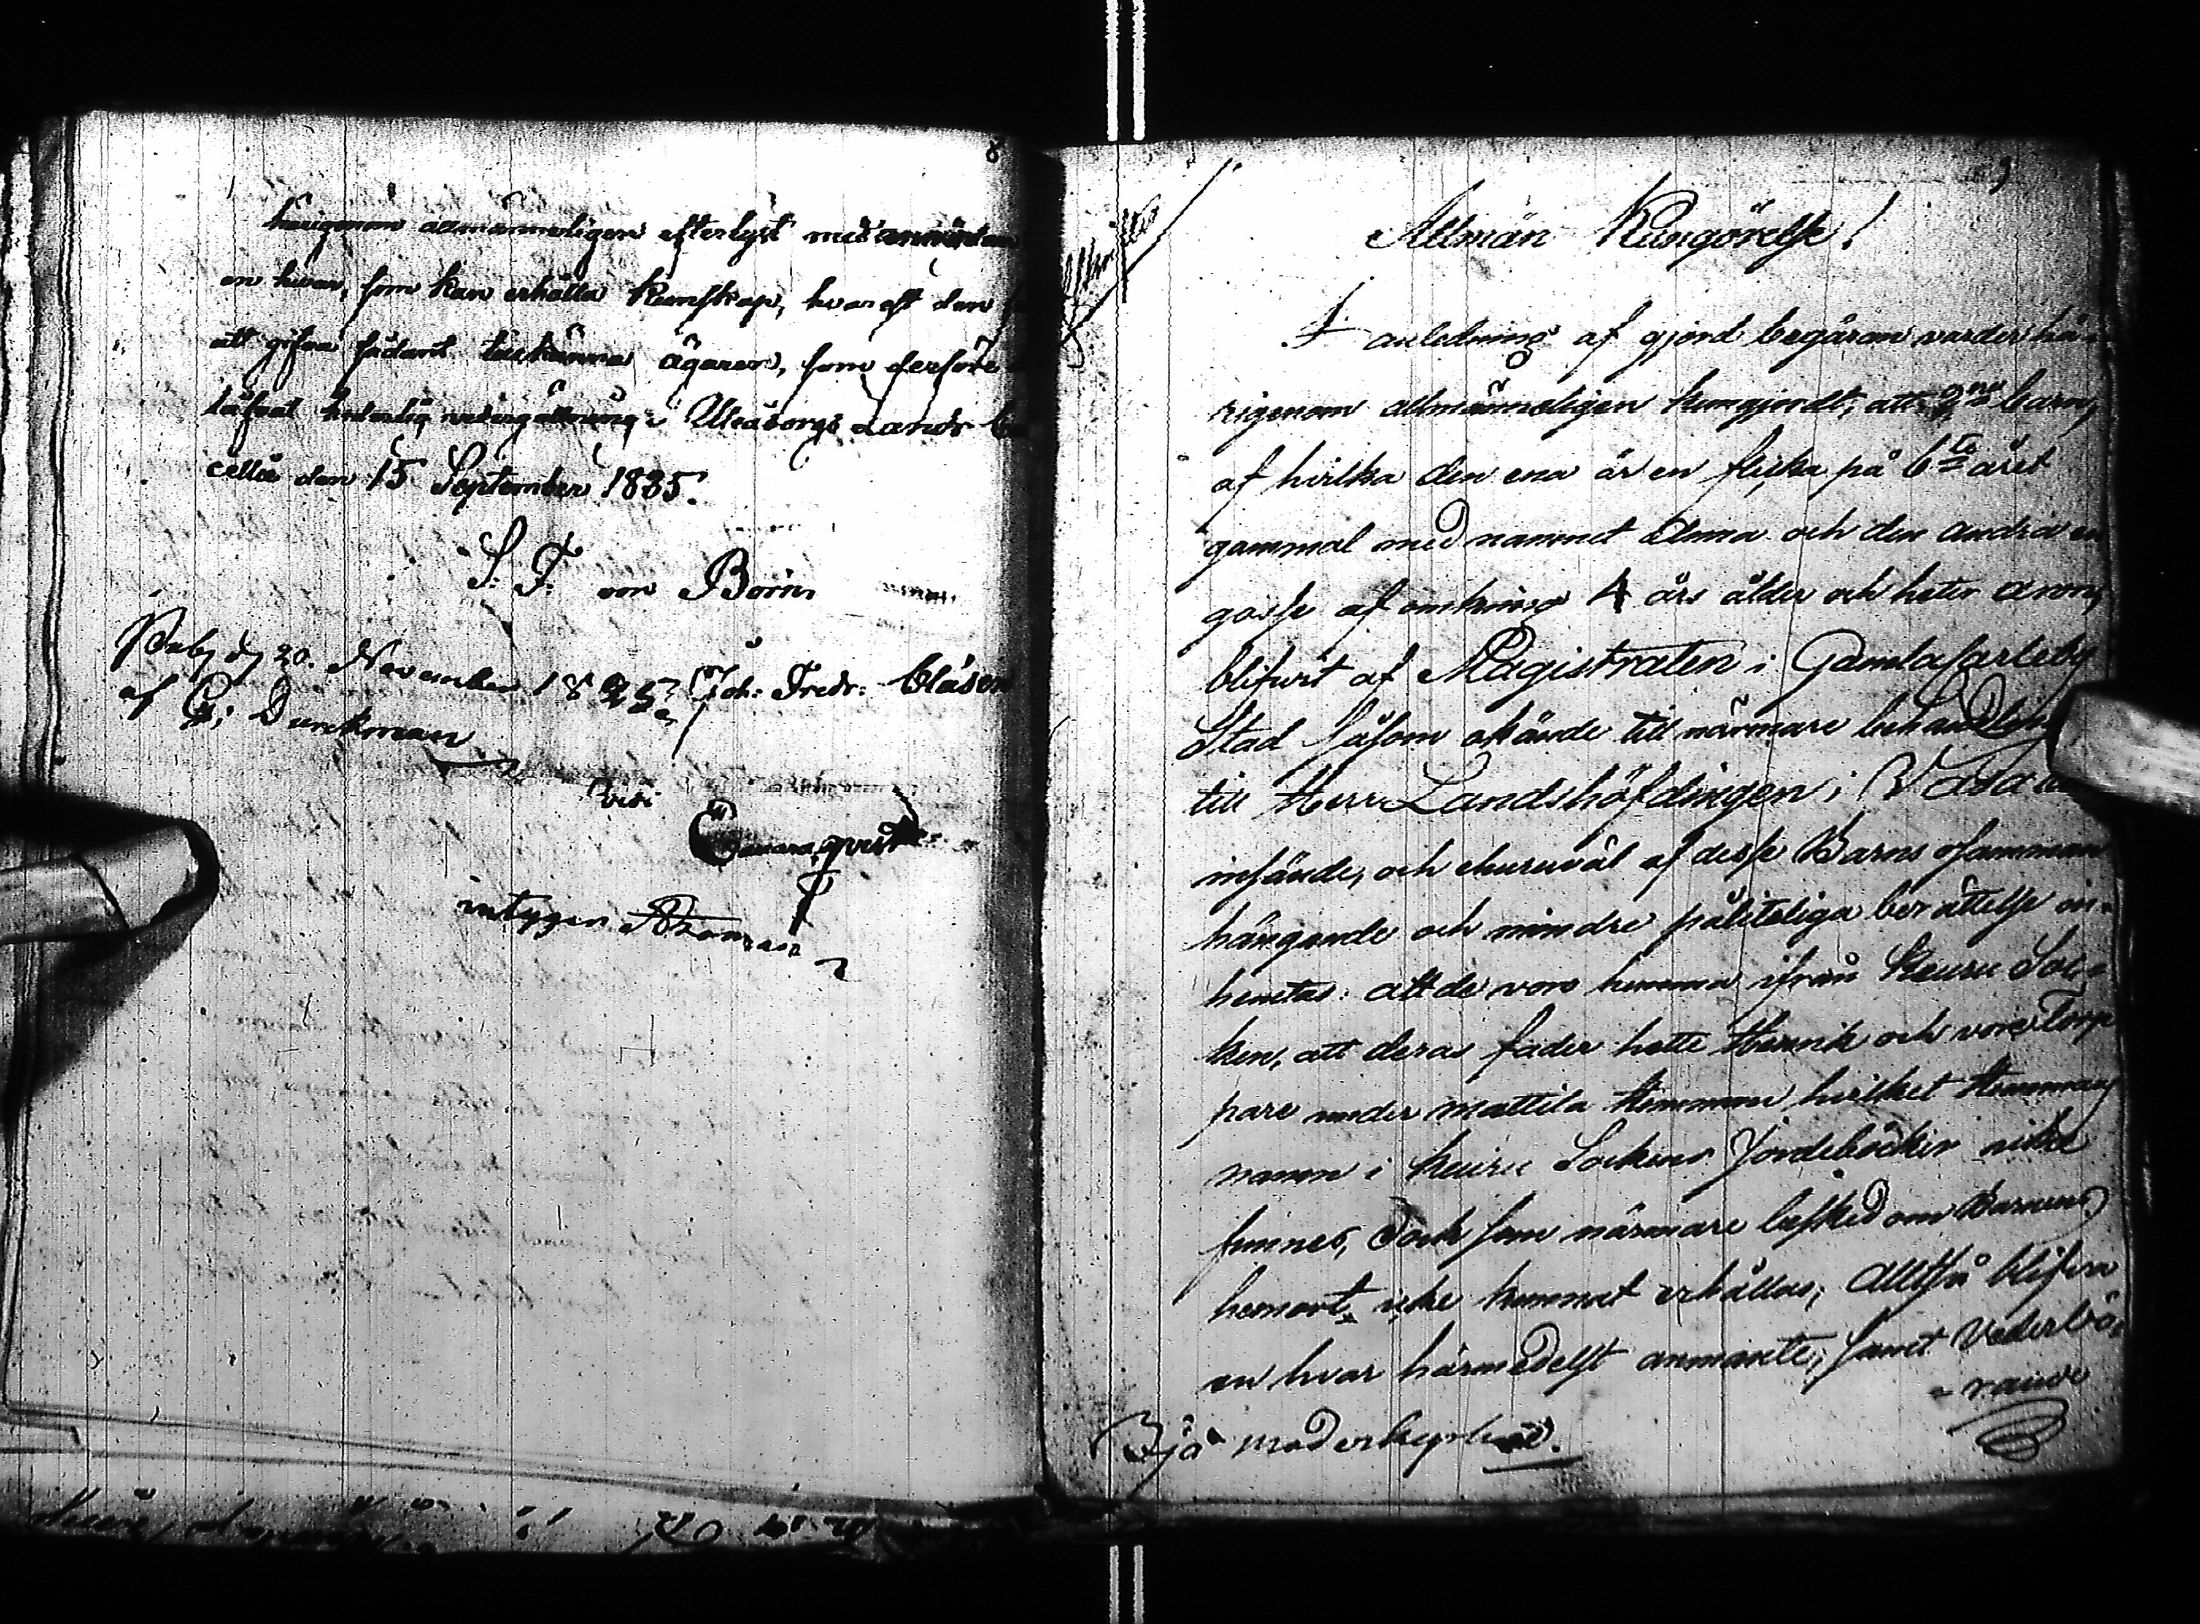 8
härigenom allmänneligen efterlyst med anmodan
en hvar, som kan erhålla kunskap, hvar est den
att gifva sådant tillkänna ägaren, som derföre
låfvat hederlig vedergällning. Uleåborgs Lands
cellie den 15 September 1835.
S: F: von Born
Publ d 20. November 1835 Joh: Fredr: Clásen
af G: Durchman
vidi
intygar
9
Allmän Kungörelse!
I anledning af gjord begäran varder hä-
rigenom allmänneligen kungjordt, att 2ne barn,
af hvilka den ena är en flicka på 6te året
gammal med namnet Anna och den andra en
gosse af omkring 4 års ålder och heter
blifvit af Magistraten i Gamlakarleby
Stad såsom okände till närmare behandling
till Herr Landshöfdingen i Vasa
insände, och ehuruväl af desse Barns osamman
hängande och mindre pålitliga berättelse in-
hemtas: att de voro hemma ifrån Keuru Soc-
ken, att deras fader hette Henrik och vore Torp
pare under Mattila Hemman hvilket Hemmans
namn i Keuru Sockens Jordeböcker icke
finnes, dock som närmare besked om Barnens
hemort icke kunnat erhållas; Alltså blifva
en hvar härmedelst anmante, samt Vederbö-
-rande